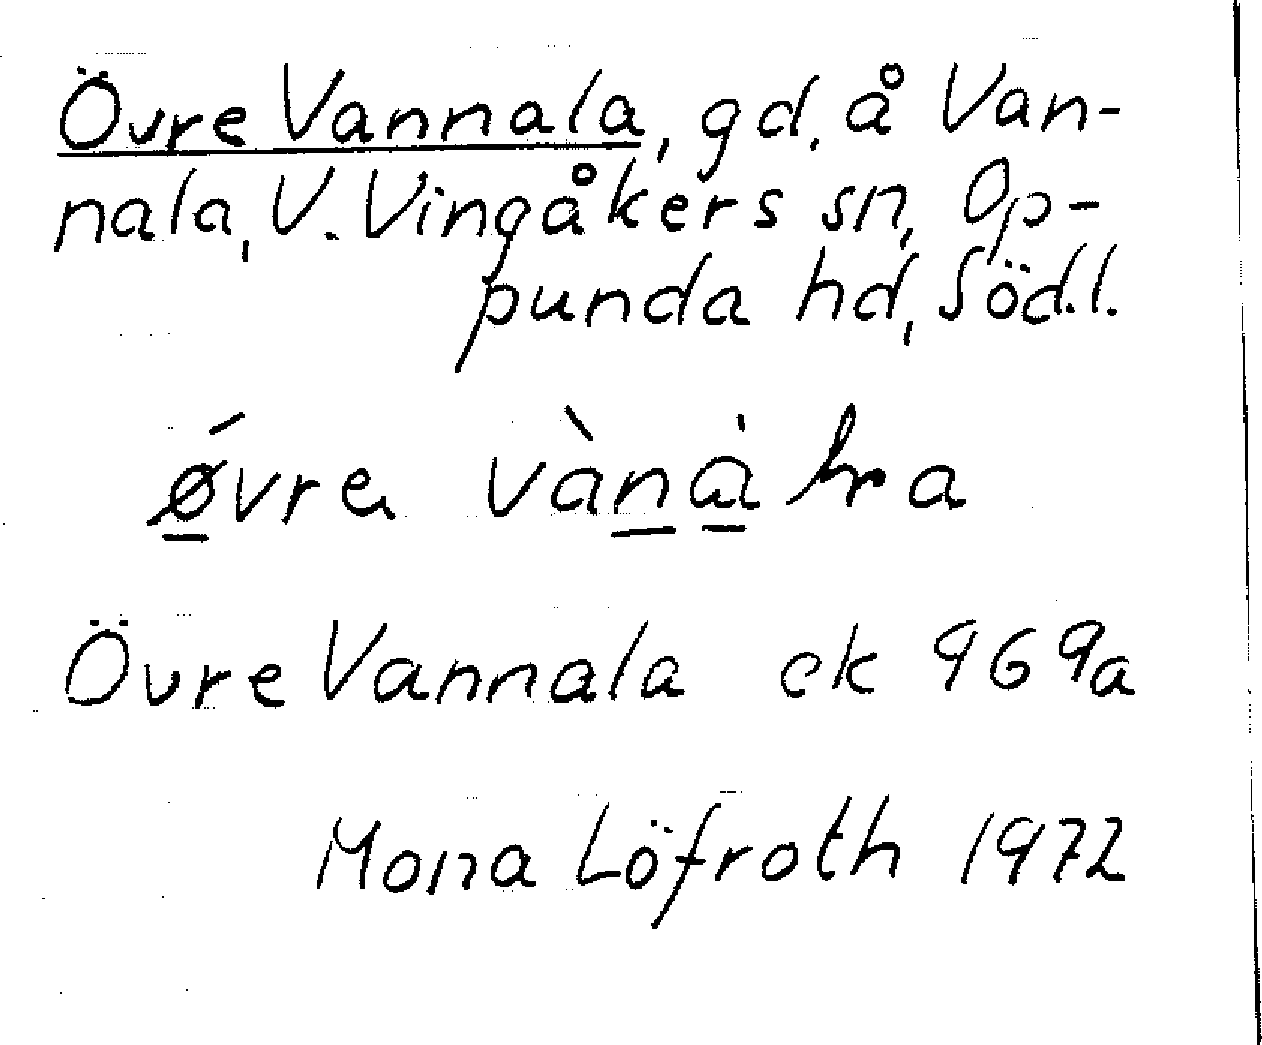 Övre Vannala, gd. å Van-
nala, V. Vingåkers sn, Op-
punda hd, Södl.
Övre Vannala ek 969a
Mona Löfroth 1972